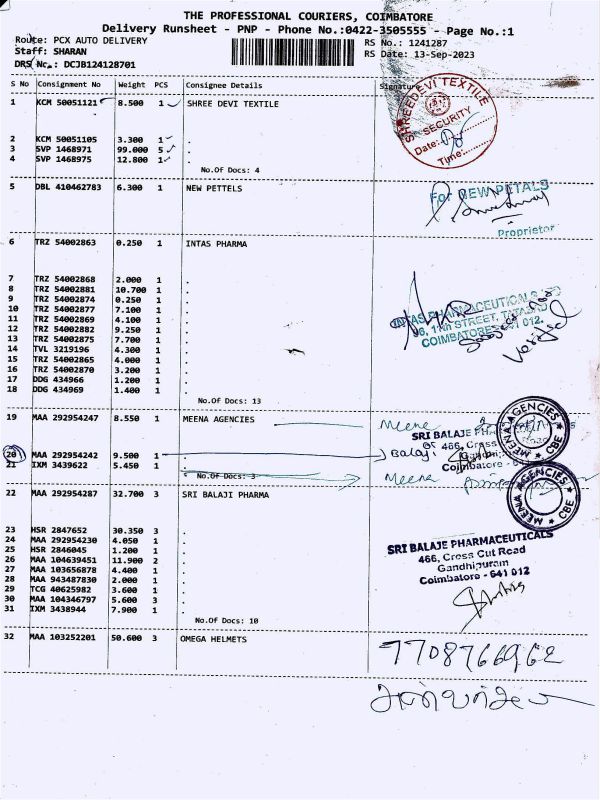 THE PROFESSIONAL COURIERS, COIMBATORE
Delivery Runsheet - PNP - Phone No.:0422-3505555 - Page No.:1
Route: PCX AUTO DELIVERY RS No.: 1241287
Staff: SHARAN RS Date: 13-Sep-2023
DRS No.: DCJB124128701
S No Consignment No Weight PCS Consignee Details Signature
1 KCM 50051121 8.500 1 SHREE DEVI TEXTILE
SHREEDEVI TEXTILE
SECURITY
Date:
Time:
2 KCM 50051105 3.300 1 .
3 SVP 1468971 99.000 5 .
4 SVP 1468975 12.800 1 .
No.Of Docs: 4
5 DBL 410462783 6.300 1 NEW PETTELS
For NEW PETALS
Proprietor
6 TRZ 54002863 0.250 1 INTAS PHARMA
7 TRZ 54002868 2.000 1 .
8 TRZ 54002881 10.700 1 .
9 TRZ 54002874 0.250 1 .
10 TRZ 54002877 7.100 1 .
11 TRZ 54002869 4.100 1 .
12 TRZ 54002882 9.250 1 .
13 TRZ 54002875 7.700 1 .
14 TVL 3219196 4.300 1 .
15 TRZ 54002865 4.000 1 .
16 TRZ 54002870 3.200 1 .
17 DDG 434966 1.200 1 .
18 DDG 434969 1.400 1 .
No.Of Docs: 13
INTAS PHARMACEUTICALS LTD
11th STREET, TATABAD
COIMBATORE 641 012.
19 MAA 292954247 8.550 1 MEENA AGENCIES Meena
MEENA AGENCIES CBE
20 MAA 292954242 9.500 1 . Balaji
21 IXM 3439622 5.450 1 .
No.Of Docs: 3 Meena
SRI BALAJE PHARMACEUTICALS
466, Cross Cut Road
Gandhipuram
Coimbatore - 641 012
MEENA AGENCIES CBE
22 MAA 292954287 32.700 3 SRI BALAJI PHARMA
23 HSR 2847652 30.350 3 .
24 MAA 292954230 4.050 1 .
25 HSR 2846045 1.200 1 .
26 MAA 104639451 11.900 2 .
27 MAA 103656878 4.400 1 .
28 MAA 943487830 2.000 1 .
29 TCG 40625982 3.600 1 .
30 MAA 104346797 5.600 3 .
31 IXM 3438944 7.900 1 .
No.Of Docs: 10
SRI BALAJE PHARMACEUTICALS
466, Cross Cut Road
Gandhipuram
Coimbatore - 641 012
32 MAA 103252201 50.600 3 OMEGA HELMETS
7708766962